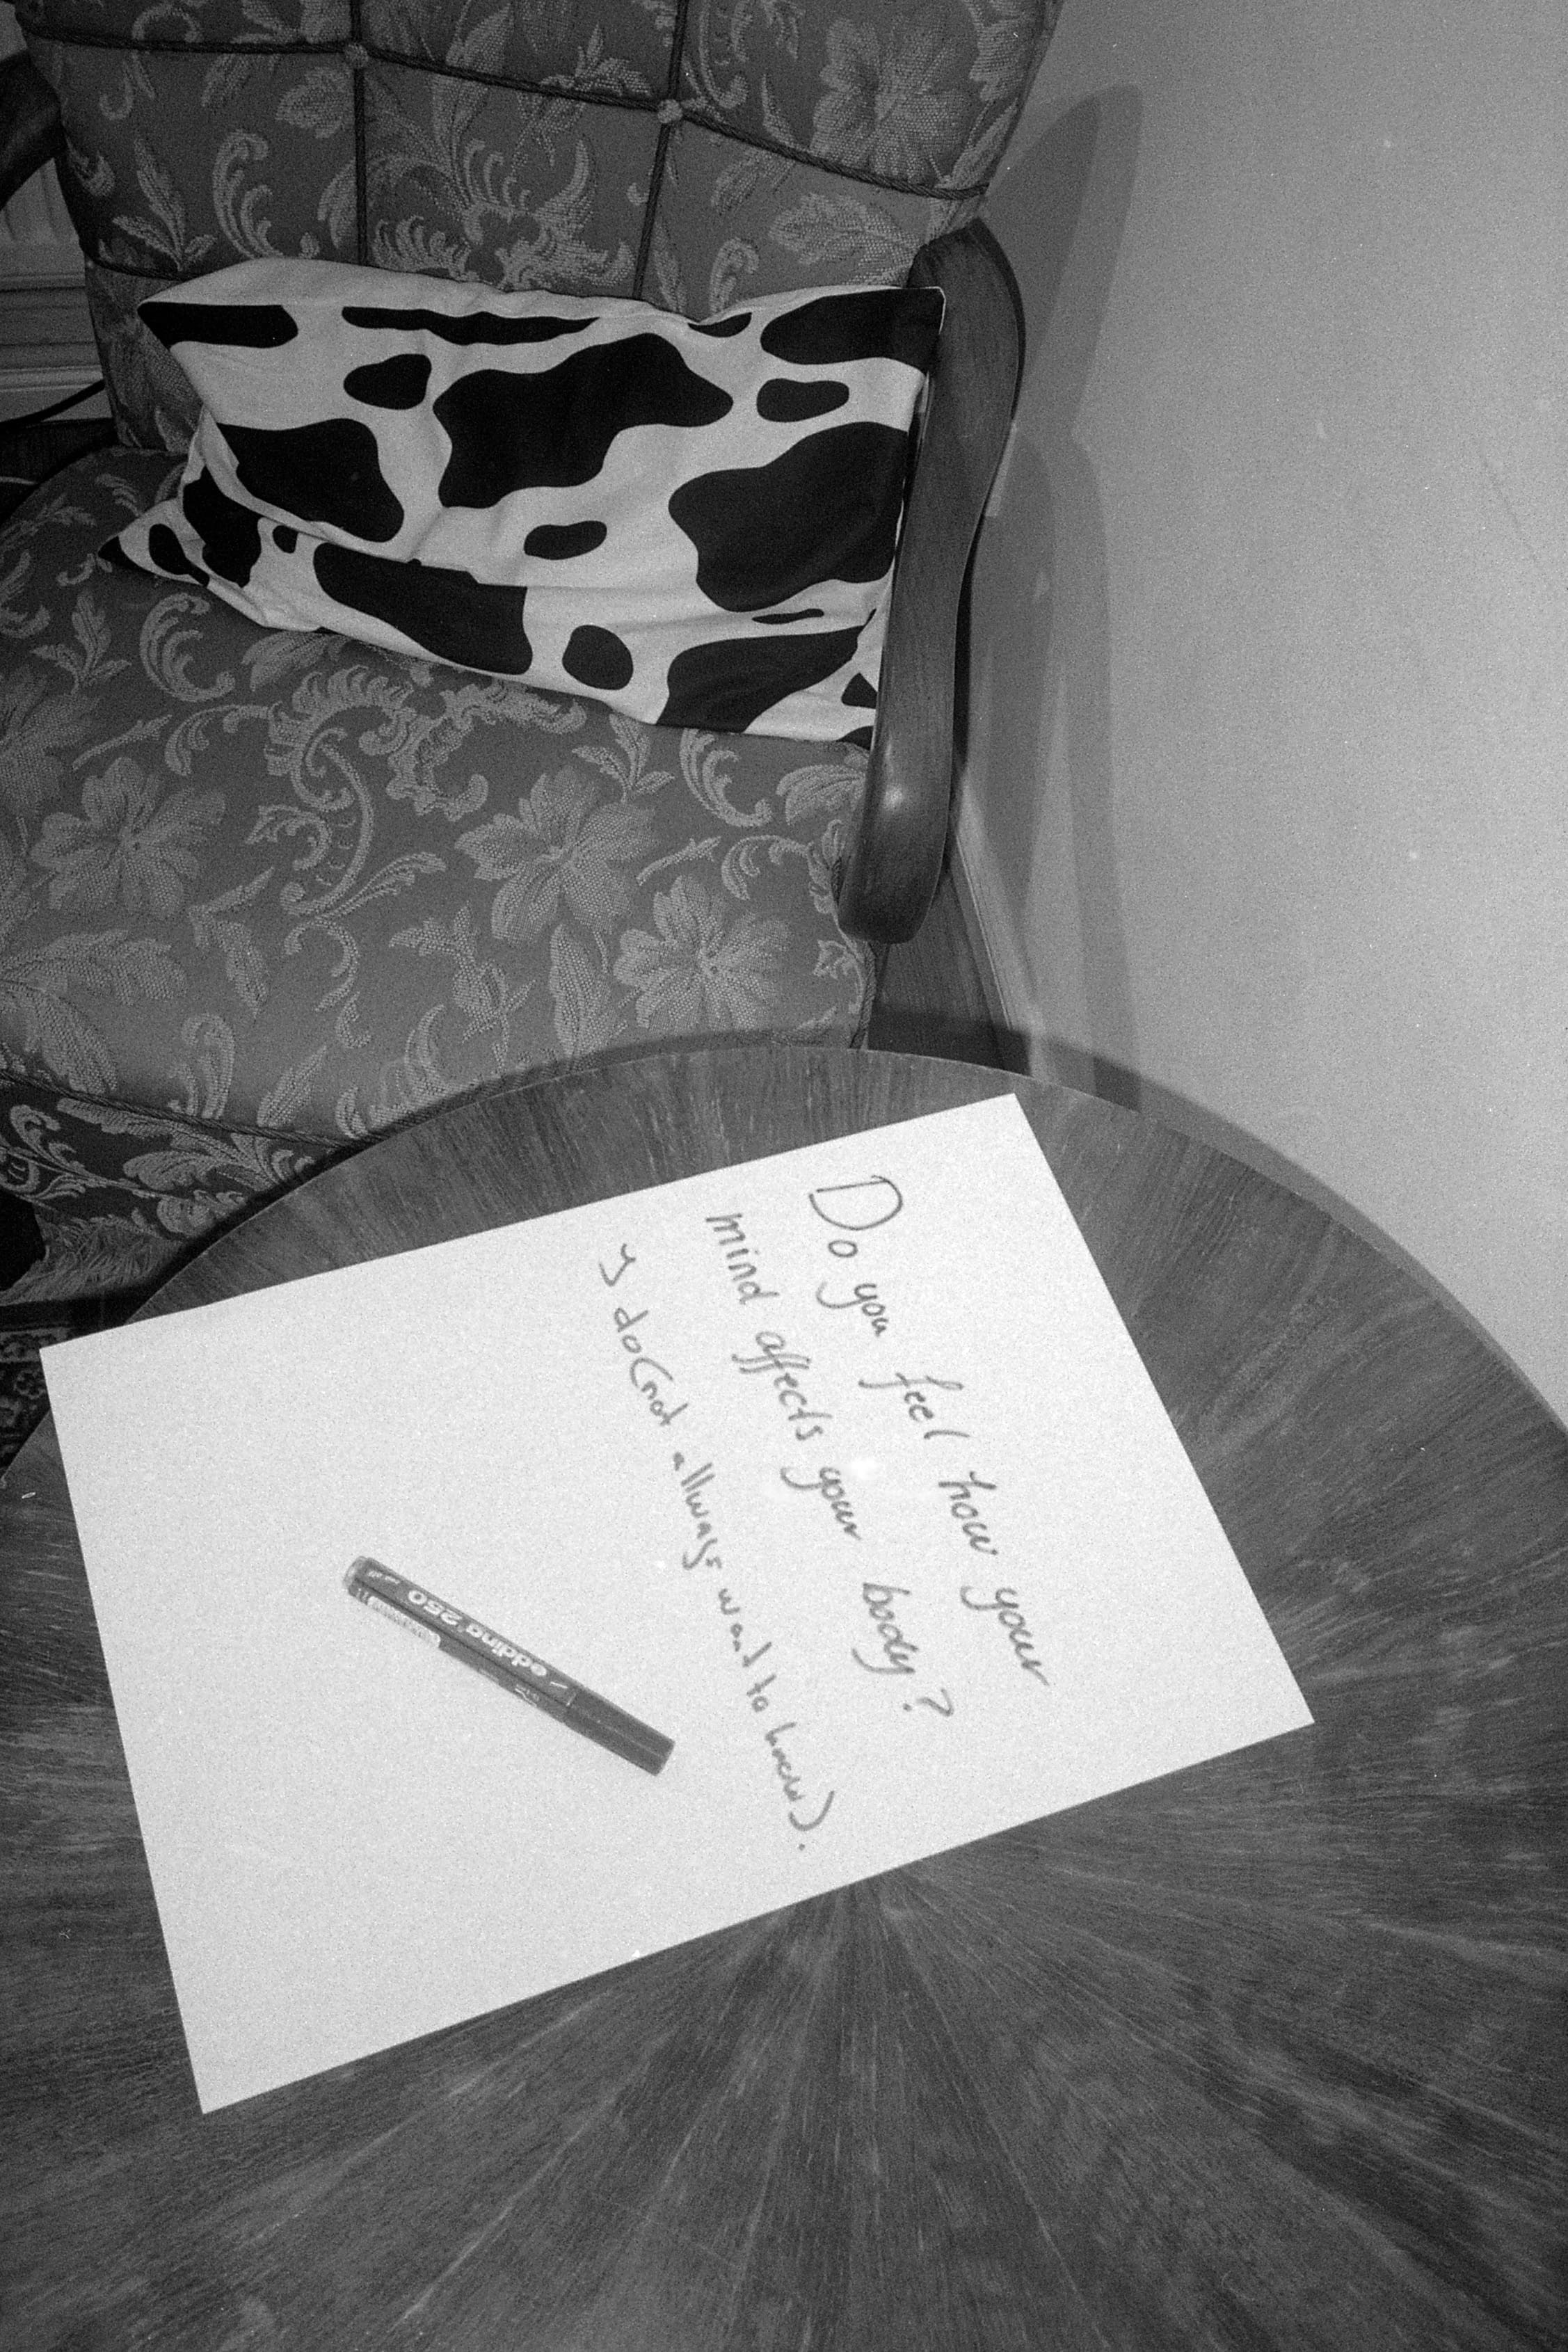 Do you feel how your
mind affects your body?
y do (not allways want to know).
edding 250